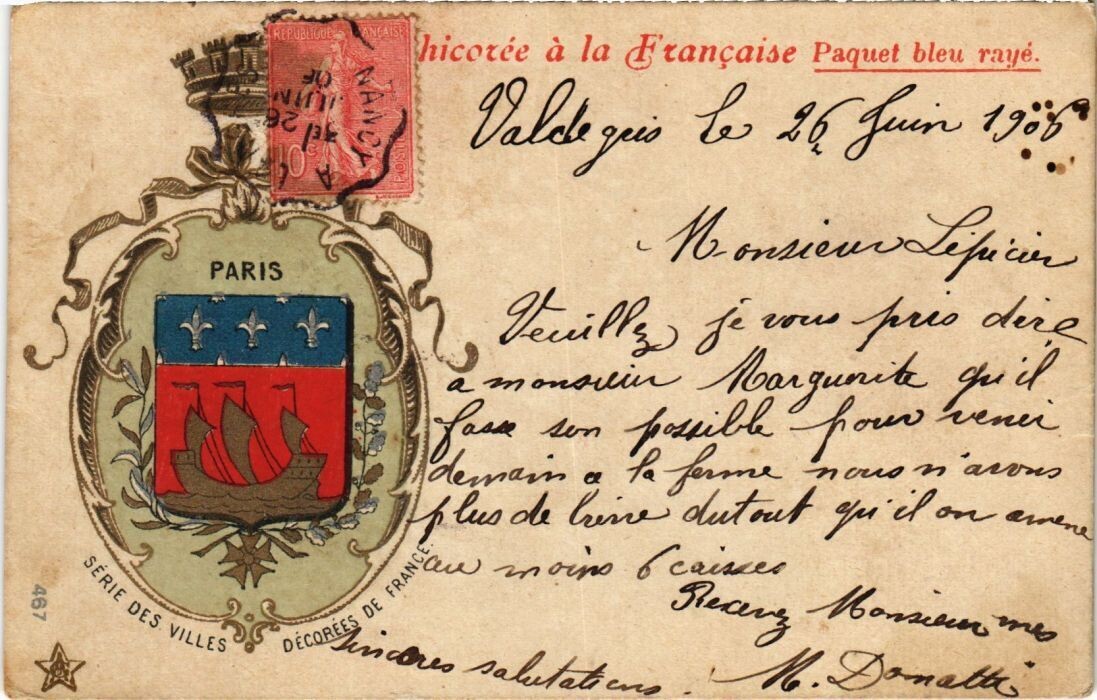 hicorée à la Française Paquet bleu rayé.
RÉPUBLIQUE FRANÇAISE
10c
POSTES
NANCY
A
26
JUIN
06
Valdegris le 26 Juin 1906
Monsieur Lépicier
Veuillez je vous pris dire
a monsieur Marguerite qu'il
fasse son possible pour venir
demain a la ferme nous n'avons
plus de bière dutout qu'il on amene
au moins 6 caisses
Recevez Monsieur mes
sincères salutations.
M.
PARIS
SÉRIE DES VILLES DÉCORÉES DE FRANCE.
467